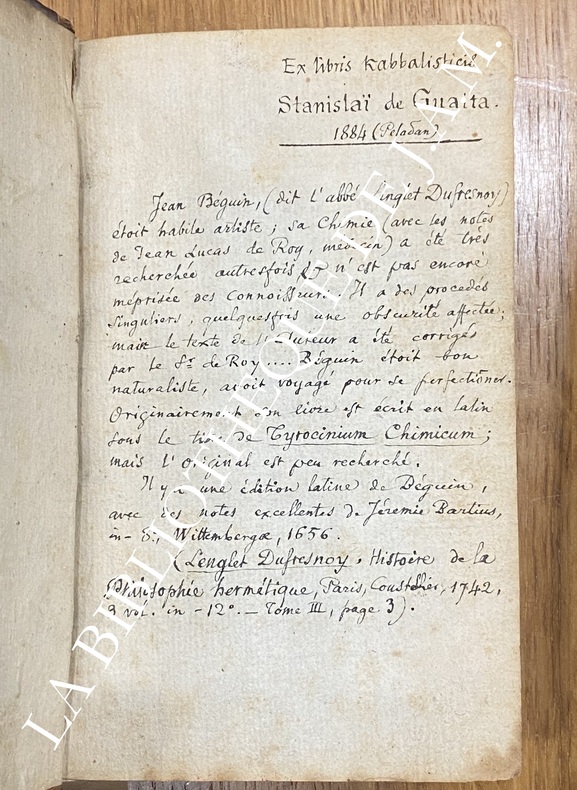 Ex libris Kabbalisticis
Stanislaï de Guaita.
1884 (Péladan)
Jean Béguin, (dit l'abbé Linglet Dufresnoy)
étoit habile artiste; sa Chimie (avec les notes
de Jean Lucas de Roy, médecin) a été très
recherchée autresfois & n'est pas encore
méprisée des Connoisseurs. Il a des procédés
singuliers, quelquesfois une obscurité affectée;
mais le texte de l'Auteur a été corrigés
par le Sr. de Roy.... Béguin étoit bon
naturaliste, avoit voyagé pour se perfectioner.
Originairement son livre est écrit en latin
sous le titre de Tyrocinium Chimicum;
mais l'original est peu recherché.
Il y a une édition latine de Béguin,
avec des notes excellentes de Jéremie Bartius,
in-8°, Wittembergæ, 1656.
(Lenglet Dufresnoy, Histoire de la
Philosophie hermétique, Paris, Coustelier, 1742,
3 vol. in-12°. — Tome III, page 3).
LA BIBLIOTHEQUE DE J.A.M.